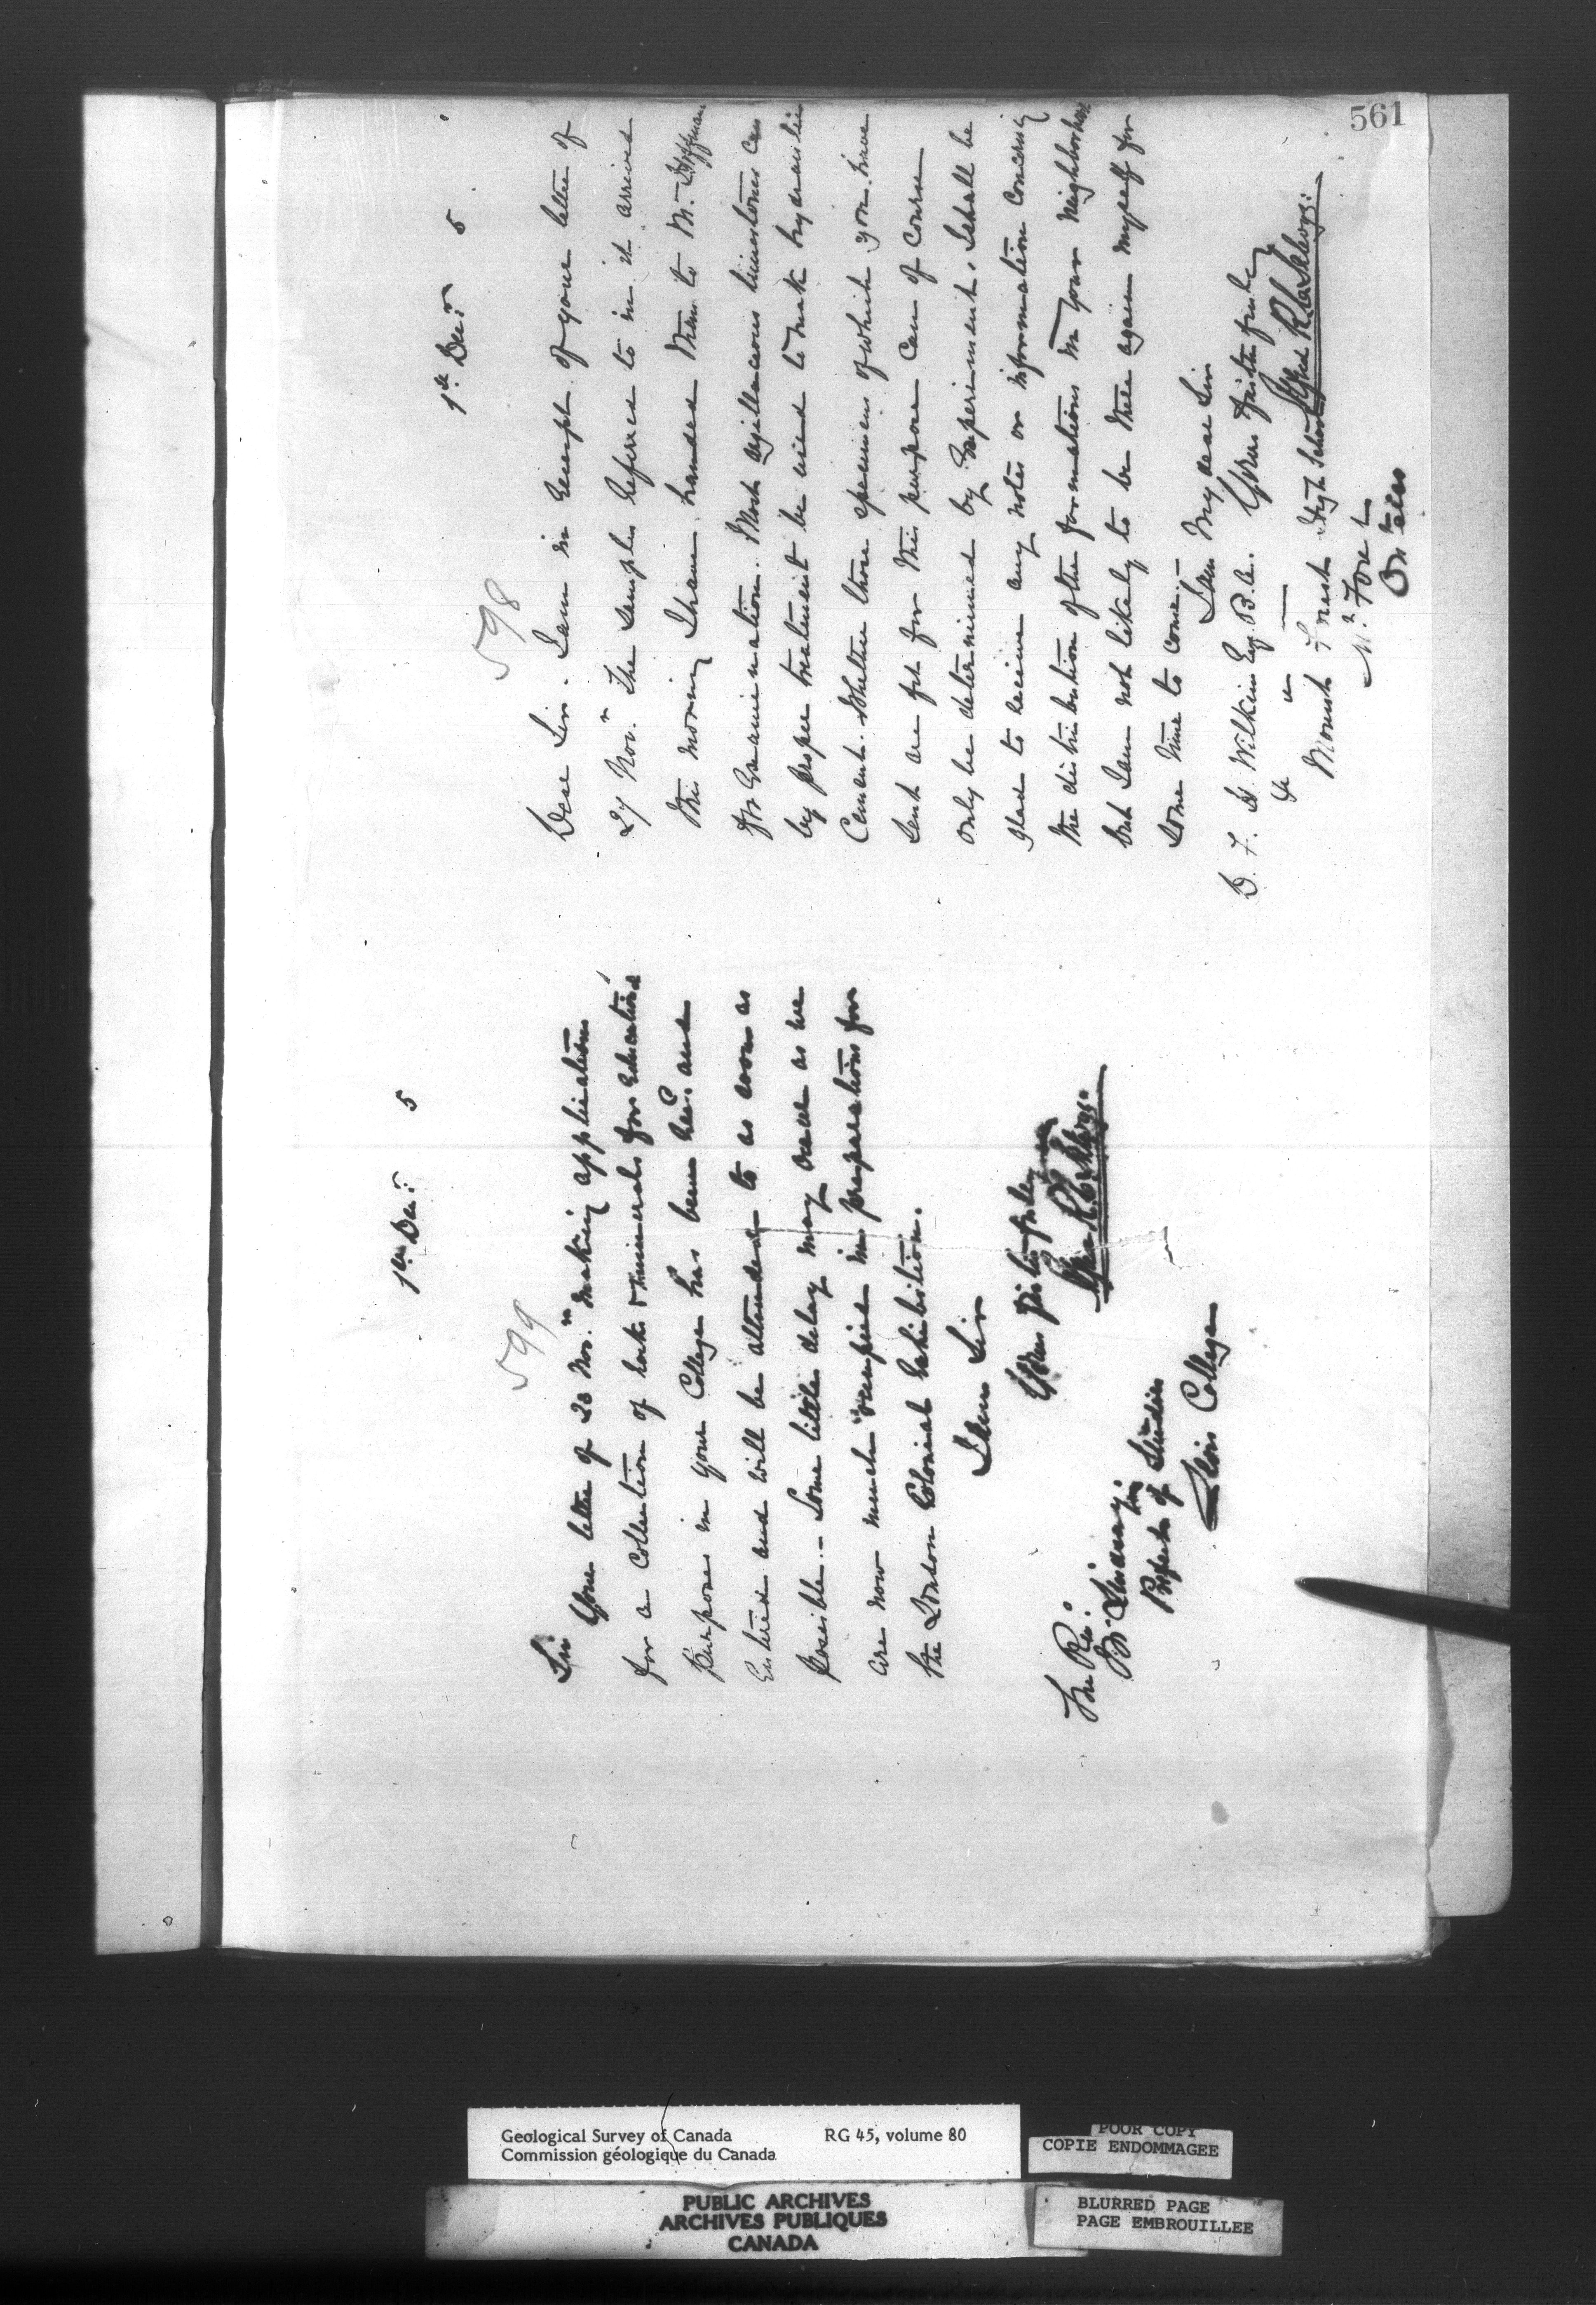 561
1st Decr 5
599
Sir
Your letter of 28 Novr making application
for a Collection of rocks & minerals for Educational
Purposes in your College has been Recd and
Entered and will be attended to as soon as
possible. Some little delay may occur as we
are now much occupied in preparations for
the London Colonial Exhibition.
I am Sir
Yours faithfully
The Rev:
Prefect of Studies
College
1st Decr 5
598
Dear Sir. I am in receipt of your letter of
27 Novr The samples referred to in it arrived
this morning I have handed them to Mr Hoffmann
for Examination. Most argillaceous limestones can
by proper treatment be used to make hydraulic
Cement. Whether those specimens of which you have
sent are fit for the purpose can of course
only be determined by Experiment. I shall be
glad to receive any notes or information concerning
the distribution of the formations in your neighborhood
but I am not likely to be there again myself for
some time to come.—
I am My dear Sir
Yours faithfully
D. F. H. Wilkins Esq. B.A.
Mount Forest High School
Mt Forest
Ontario
Geological Survey of Canada RG 45, volume 80
Commission géologique du Canada
POOR COPY
COPIE ENDOMMAGEE
PUBLIC ARCHIVES
ARCHIVES PUBLIQUES
CANADA
BLURRED PAGE
PAGE EMBROUILLEE